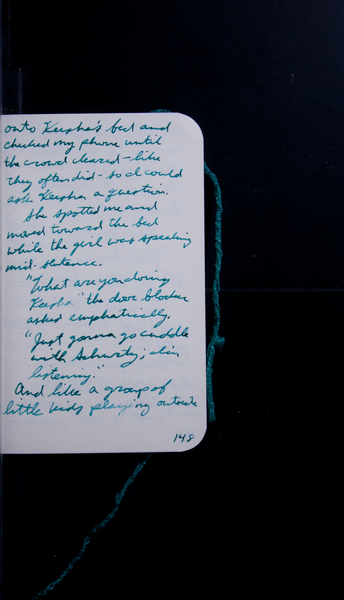 onto Keesha's bed and
checked my phone until
the crowd cleared - like
they often did - so I could
ask Keesha a question.
She spotted me and
moved toward the bed
while the girl was speaking
mid-sentence.
"What are you doing
Keesha" the door blocker
asked emphatically.
"Just gonna go cuddle
with Schwartz; I'm
listening."
And like a group of
little kids playing outside
148